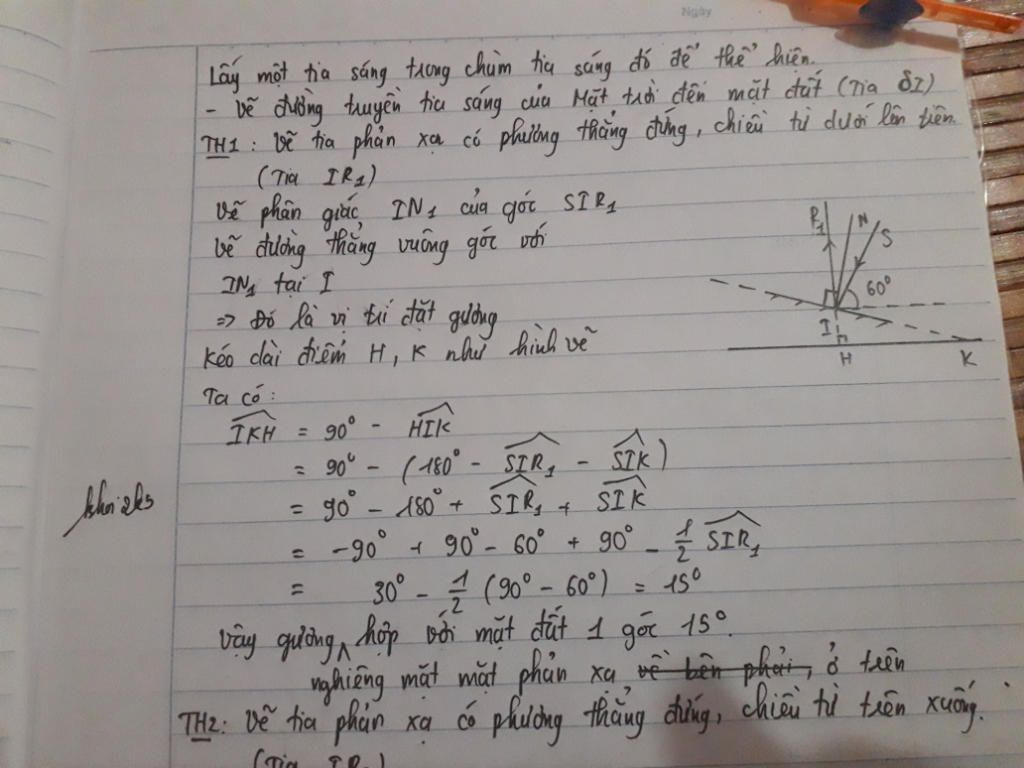 Ngày
Lấy một tia sáng trong chùm tia sáng đó để thể hiện.
- Vẽ đường truyền tia sáng của Mặt trời đến mặt đất (Tia SI)
TH1: Vẽ tia phản xạ có phương thẳng đứng, chiều từ dưới lên trên.
(Tia IR₁)
Vẽ phân giác IN₁ của góc SIR₁
Vẽ đường thẳng vuông góc với
IN₁ tại I
=> Đó là vị trí đặt gương
Kéo dài điểm H, K như hình vẽ
R₁ N S
60°
I
H K
Ta có:
\widehat{IKH} = 90° - \widehat{HIK}
= 90° - (180° - \widehat{SIR₁} - \widehat{SIK})
= 90° - 180° + \widehat{SIR₁} + \widehat{SIK}
= -90° + 90° - 60° + 90° - 1/2 \widehat{SIR₁}
= 30° - 1/2 (90° - 60°) = 15°
khoi2k3
Vậy gương hợp với mặt đất 1 góc 15°.
nghiêng mặt mặt phản xạ về bên phải, ở trên
TH2: Vẽ tia phản xạ có phương thẳng đứng, chiều từ trên xuống.
(Tia IR